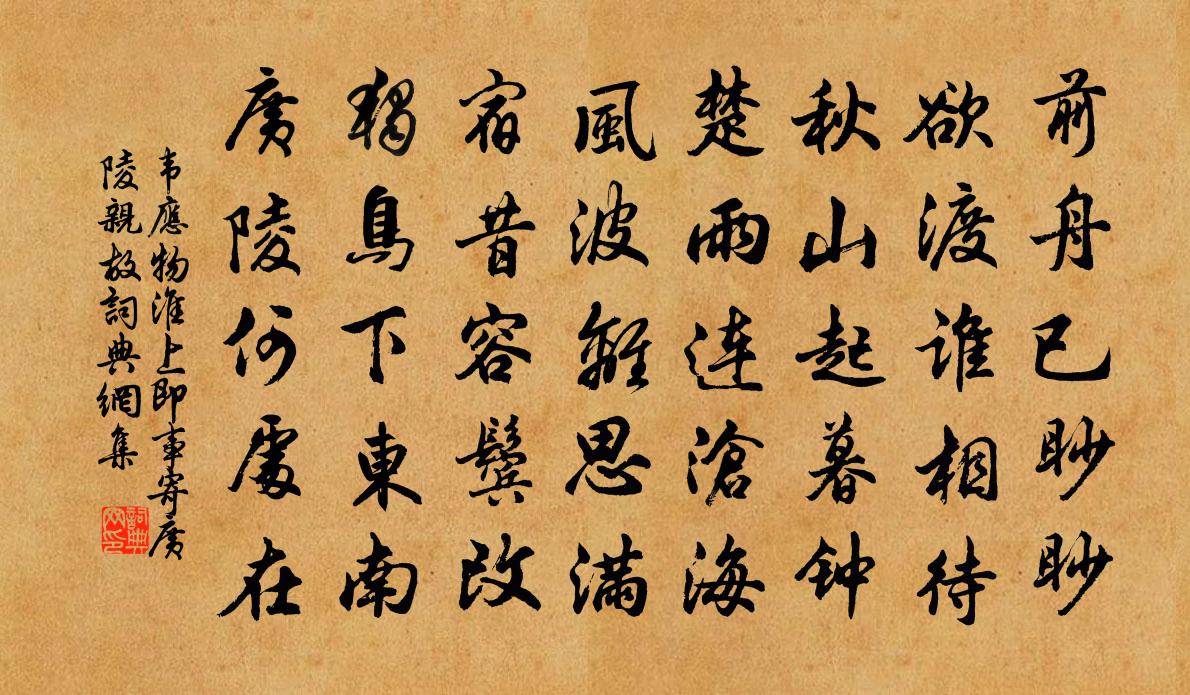 前舟已眇眇
欲渡谁相待
秋山起暮钟
楚雨连滄海
風波離思满
宿昔容鬢改
獨鳥下東南
廣陵何處在
韦應物淮上即事寄廣
陵親故詞典網集